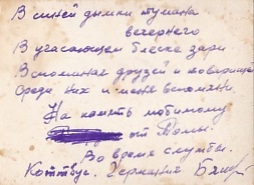 В синей дымки тумана
вечернего
В угасающем блеске зари
Вспоминая друзей и товарищей
Среди них и меня вспомяни.
На память любимому
от Томы.
Во время службы.
Коттбус. Германия